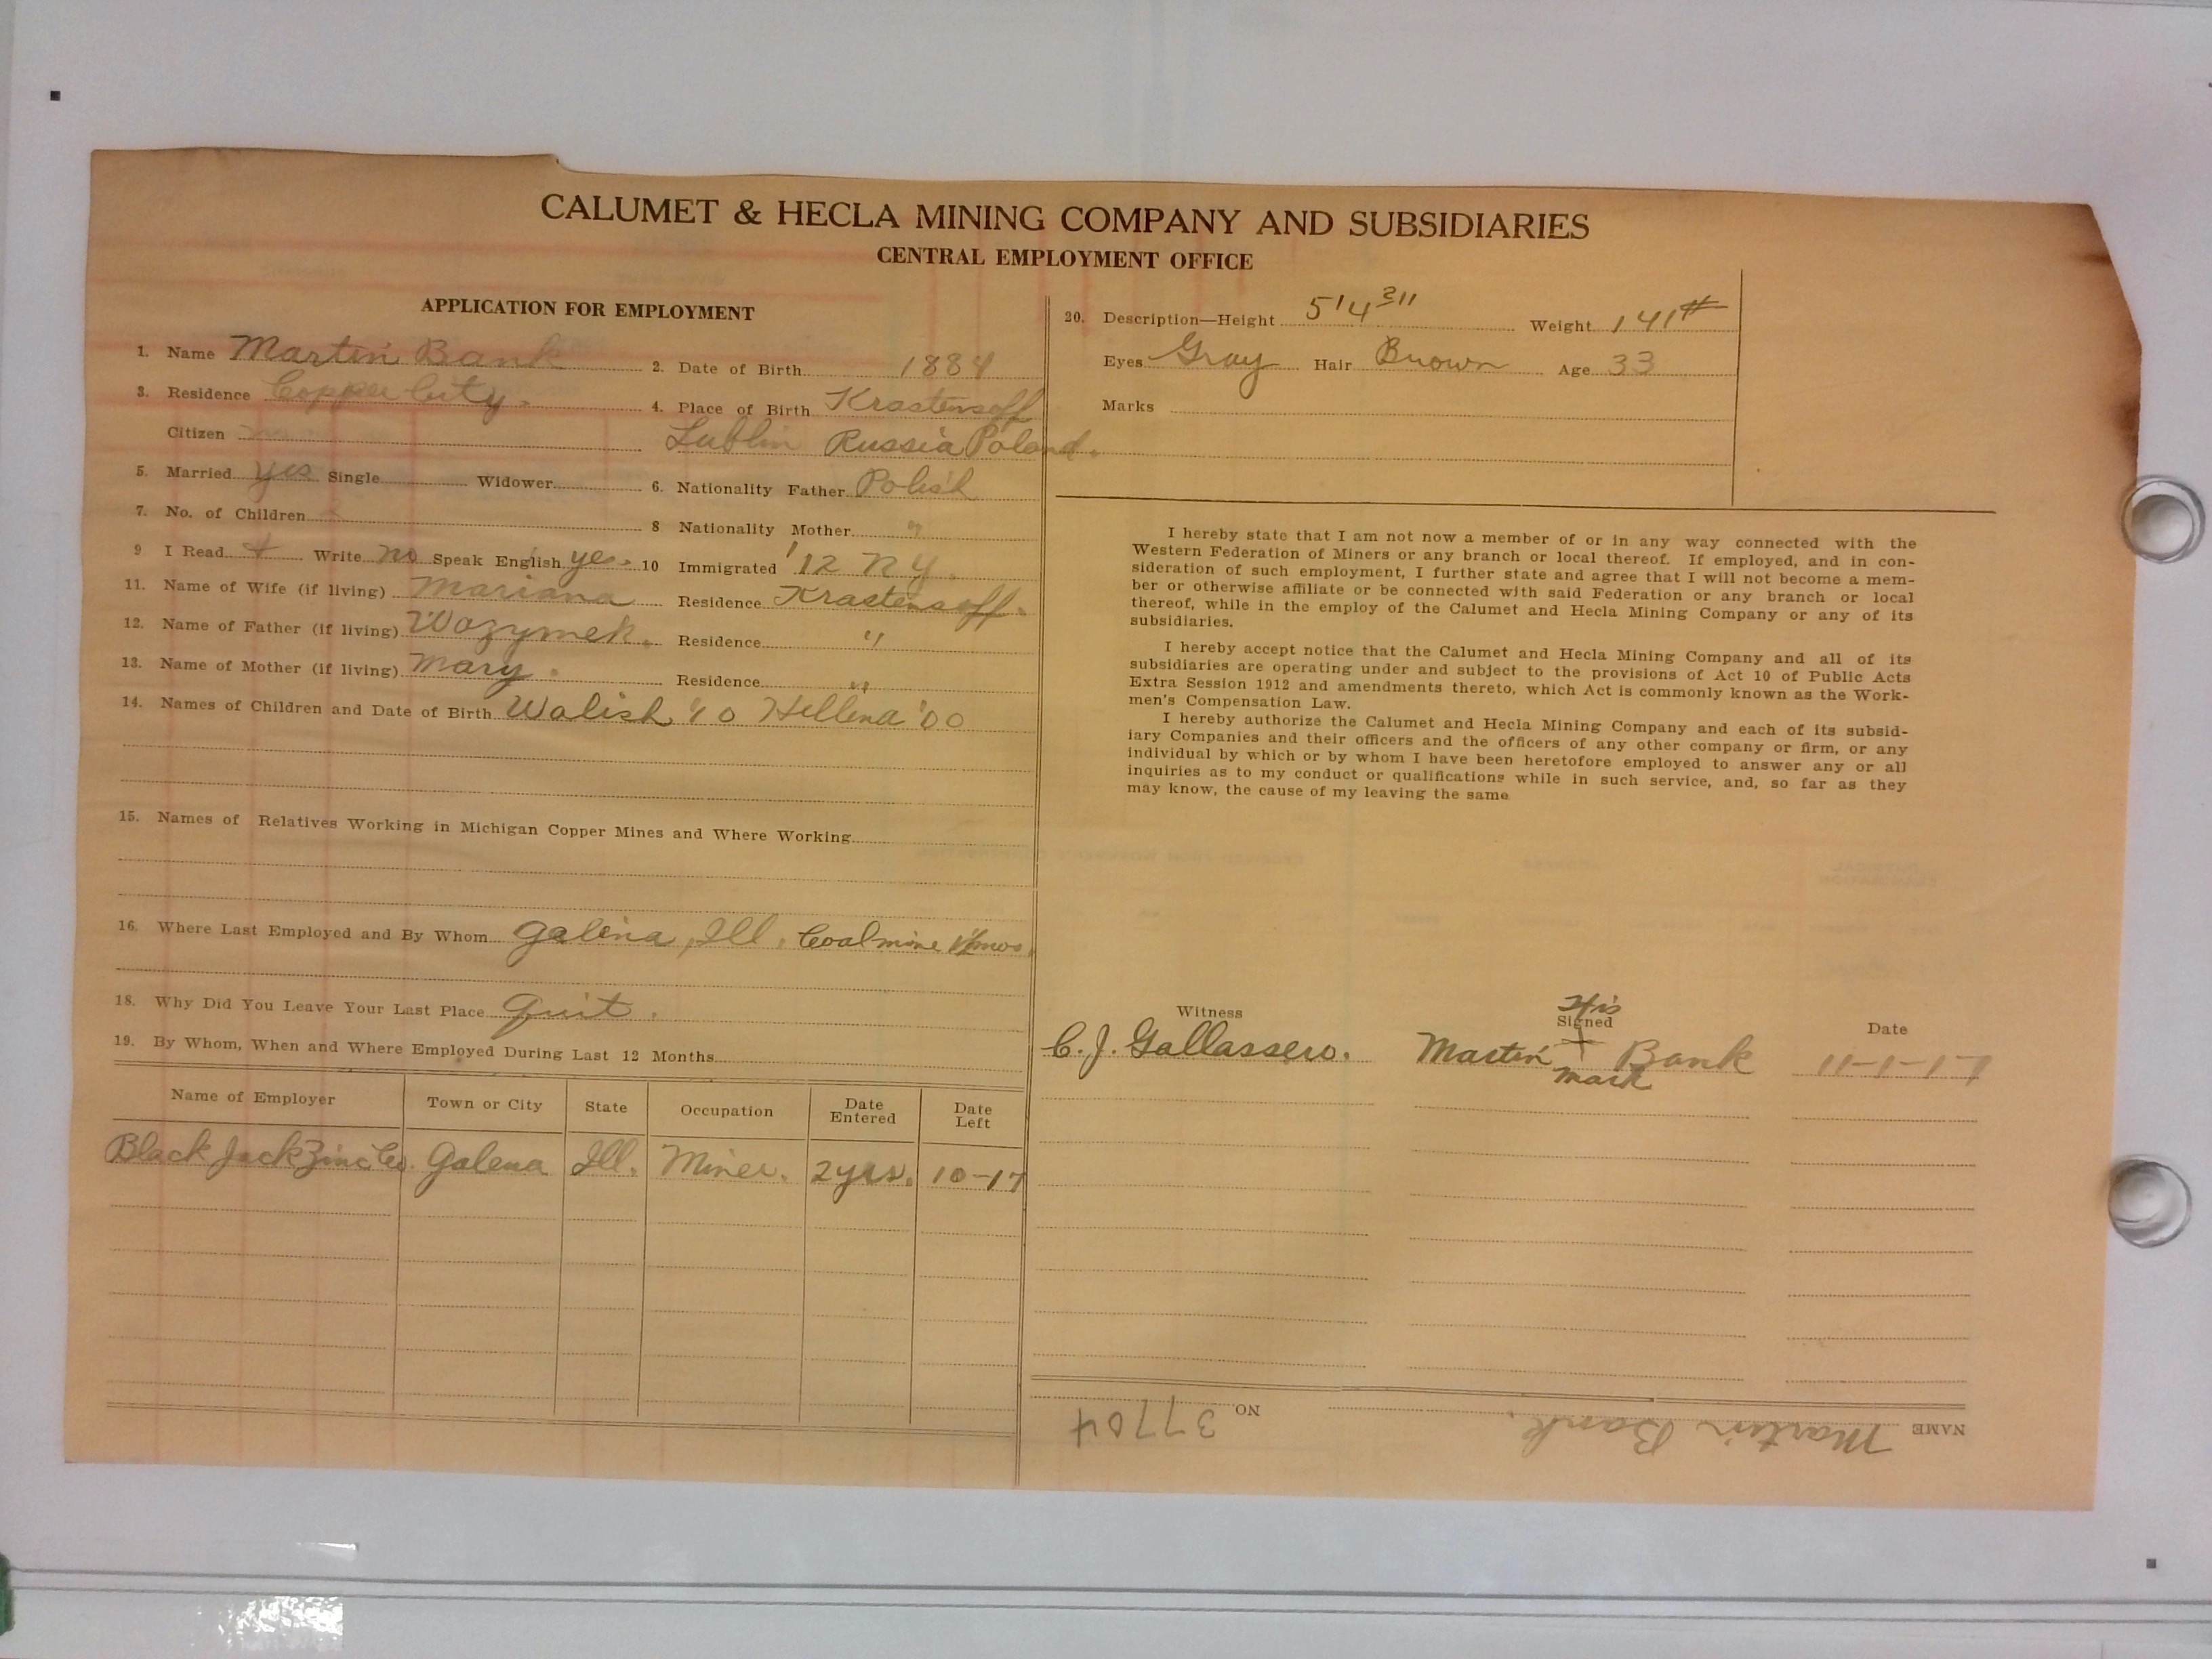 CALUMET & HECLA MINING COMPANY AND SUBSIDIARIES
CENTRAL EMPLOYMENT OFFICE
APPLICATION FOR EMPLOYMENT
1. Name Martin Bank 2. Date of Birth 1884
3. Residence Copper City. 4. Place of Birth Krastensoff
Citizen Lublin Russia Poland.
5. Married yes Single Widower 6. Nationality Father Polish
7. No. of Children 8 Nationality Mother "
9 I Read Write no Speak English yes. 10 Immigrated '12 N Y.
11. Name of Wife (if living) Mariana Residence Krastensoff.
12. Name of Father (if living) Wozymek. Residence "
13. Name of Mother (if living) Mary. Residence "
14. Names of Children and Date of Birth Walish '10 Hellena '00
15. Names of Relatives Working in Michigan Copper Mines and Where Working
16. Where Last Employed and By Whom Galena, Ill. Coalmine
18. Why Did You Leave Your Last Place Quit.
19. By Whom, When and Where Employed During Last 12 Months
Name of Employer Town or City State Occupation Date Entered Date Left
Black Jack Zinc Co. Galena Ill. Miner. 2yrs. 10-17
20. Description—Height 5'4 3/" Weight 141#
Eyes Gray Hair Brown Age 33
Marks
I hereby state that I am not now a member of or in any way connected with the
Western Federation of Miners or any branch or local thereof. If employed, and in con-
sideration of such employment, I further state and agree that I will not become a mem-
ber or otherwise affiliate or be connected with said Federation or any branch or local
thereof, while in the employ of the Calumet and Hecla Mining Company or any of its
subsidiaries.
I hereby accept notice that the Calumet and Hecla Mining Company and all of its
subsidiaries are operating under and subject to the provisions of Act 10 of Public Acts
Extra Session 1912 and amendments thereto, which Act is commonly known as the Work-
men's Compensation Law.
I hereby authorize the Calumet and Hecla Mining Company and each of its subsid-
iary Companies and their officers and the officers of any other company or firm, or any
individual by which or by whom I have been heretofore employed to answer any or all
inquiries as to my conduct or qualifications while in such service, and, so far as they
may know, the cause of my leaving the same
Witness His Signed Date
C. J. Gallassero. Martin + Bank 11-1-17
mark
NAME Martin Bank. NO. 37704